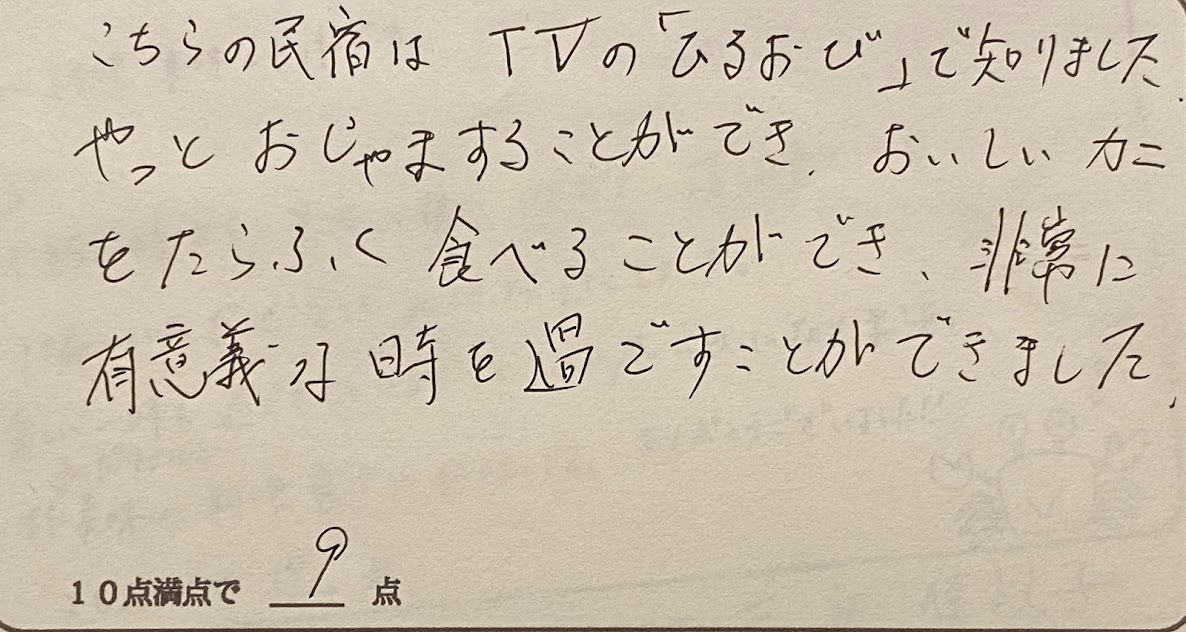 こちらの民宿は TVの「ひるおび」で知りました.
やっと おじゃますることができ. おいしい カニ
をたらふく 食べることができ、非常に
有意義な時を過ごすことができました.
10点満点で 9 点